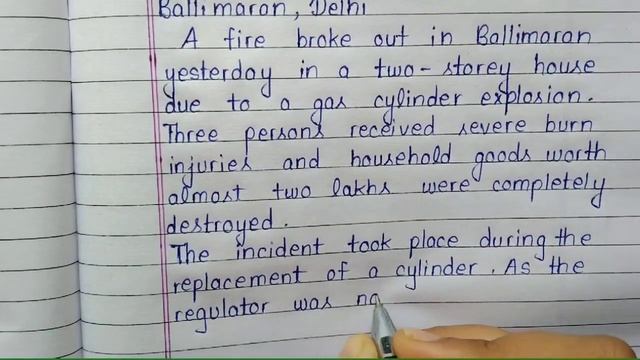 Ballimaran, Delhi
A fire broke out in Ballimaran
yesterday in a two-storey house
due to a gas cylinder explosion.
Three persons received severe burn
injuries and household goods worth
almost two lakhs were completely
destroyed.
The incident took place during the
replacement of a cylinder. As the
regulator was no